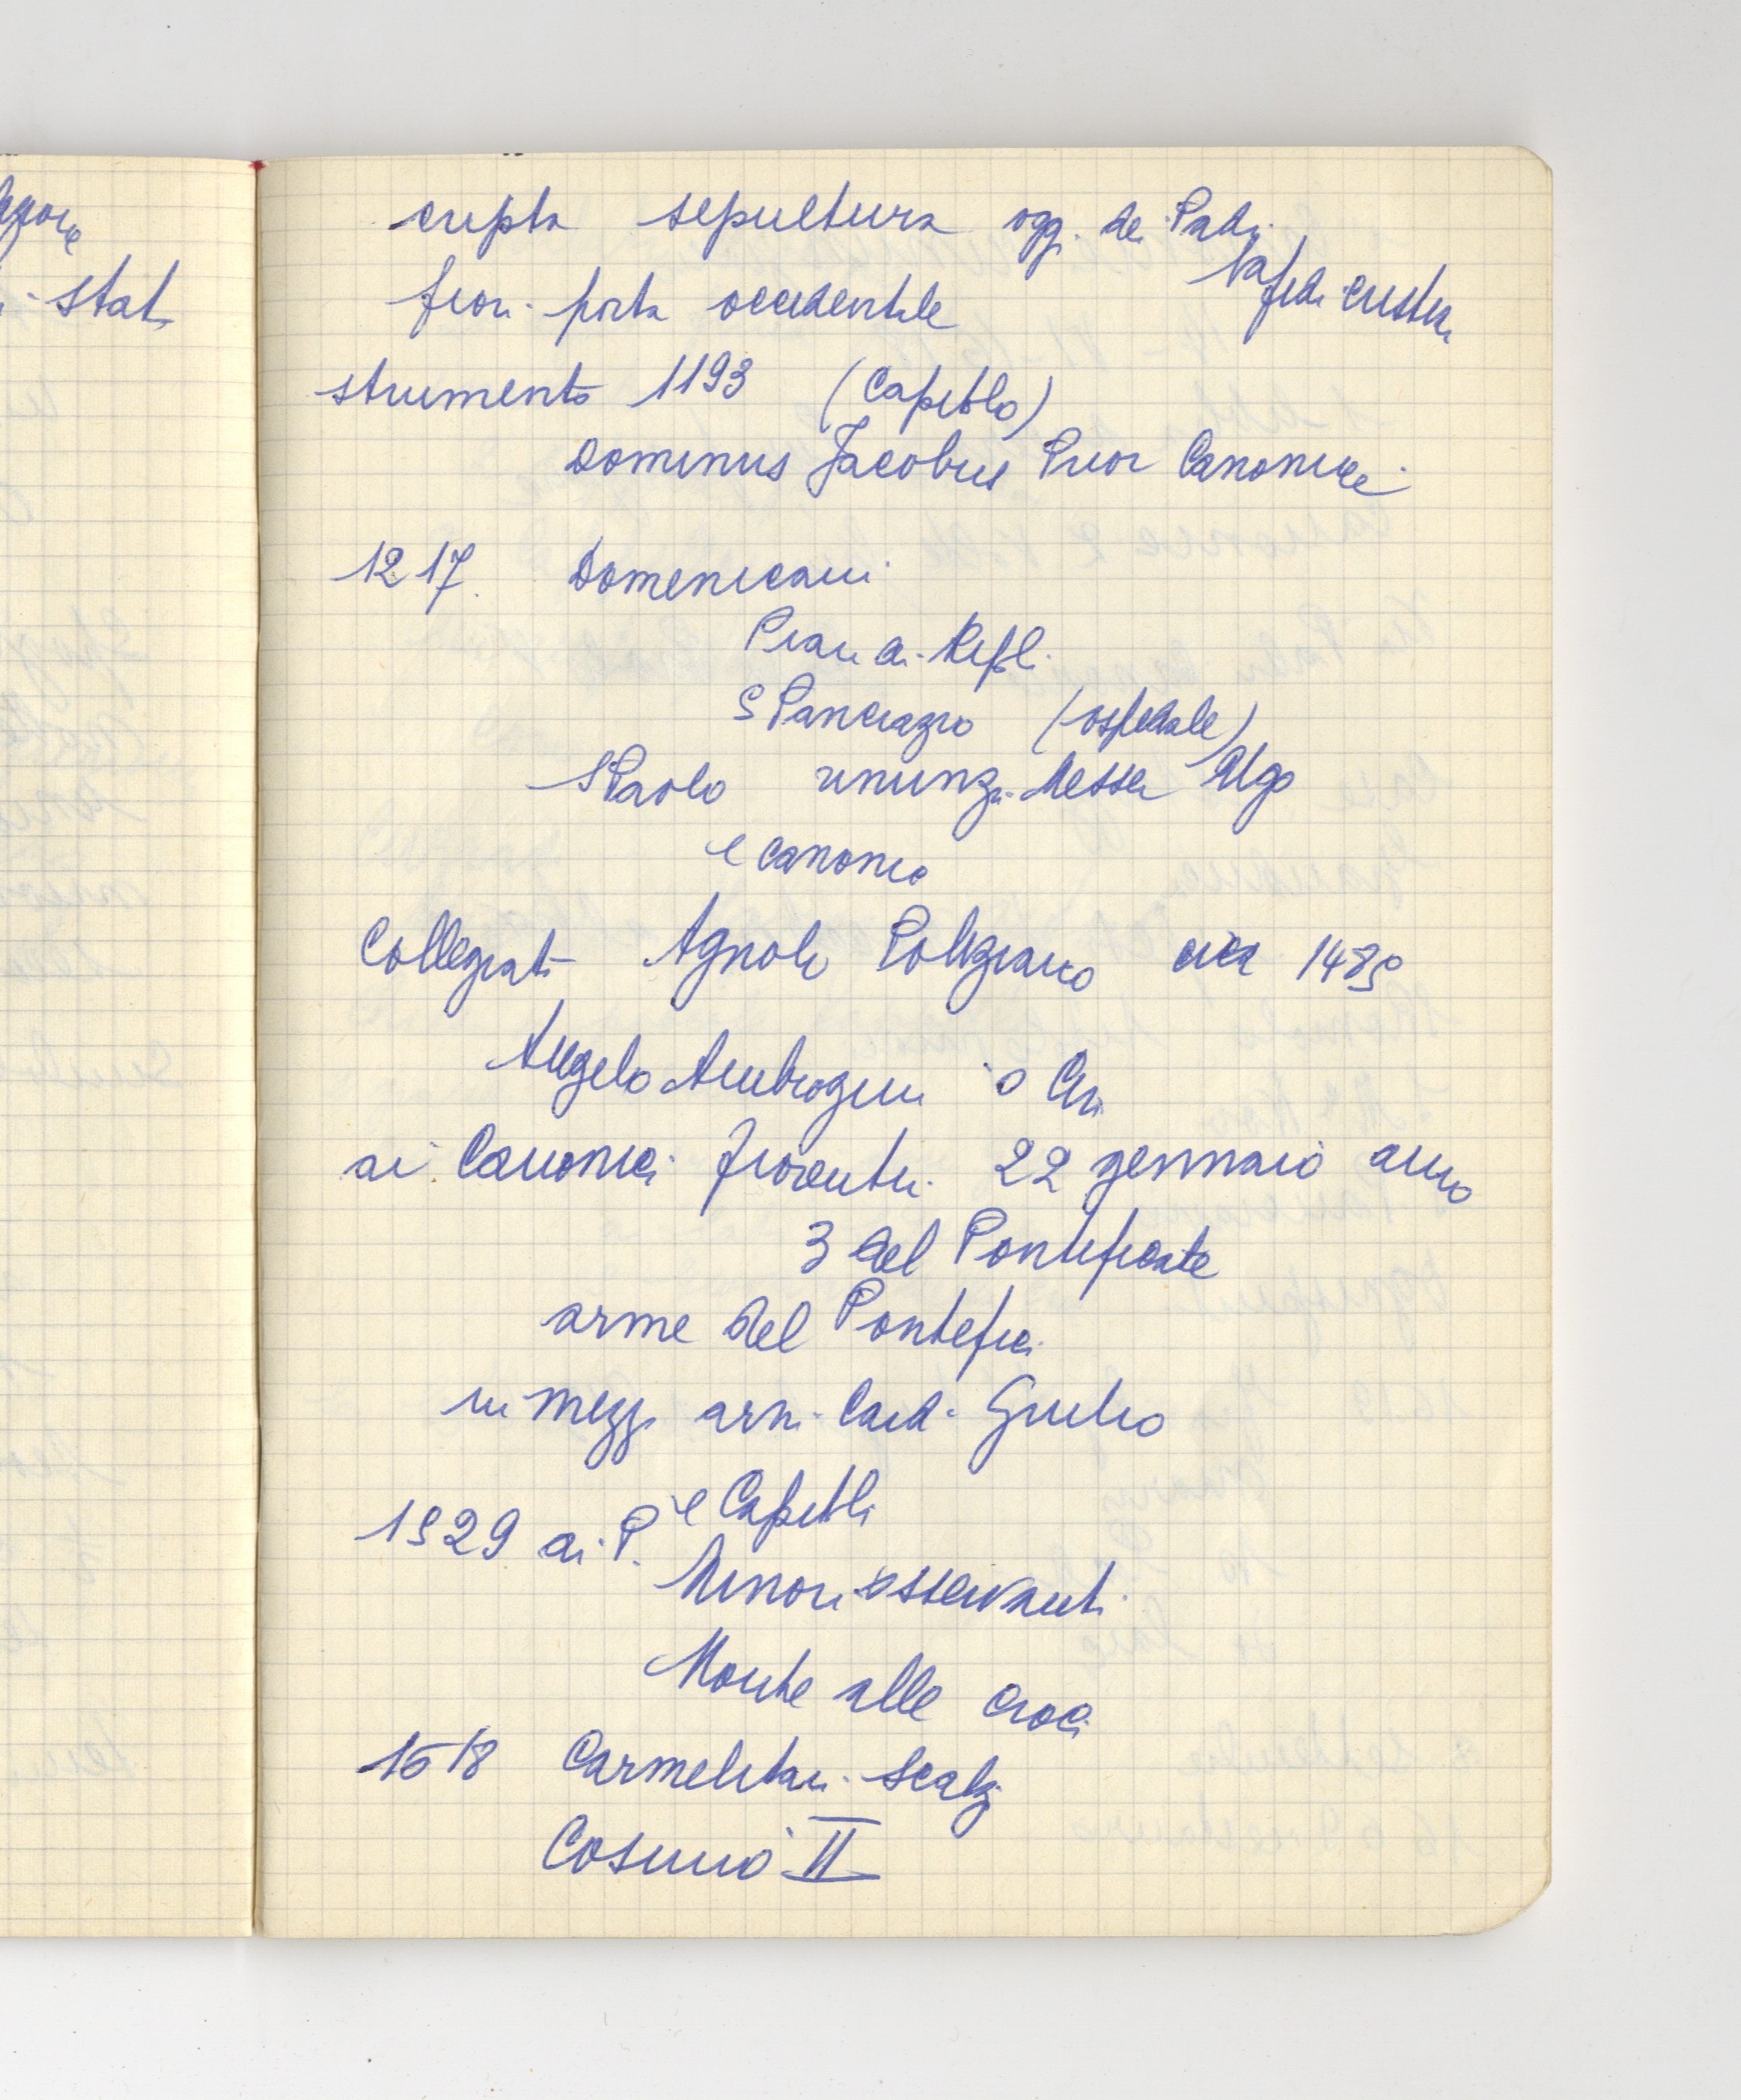 stati
cripta sepultura oggi dei Padri
la fede cristia
fuori porta occidentale
strumento 1193 (Capitolo)
Dominus Jacobus Prior Canonice
1217. Domenicani
Pian di Ripoli
S Pancrazio (ospedale)
S Paolo rinunzi Messer Ugo
e canonico
Collegiati Agnolo Poliziano circa 1485
Angelo Ambrogini o
ai Canonici fiorentini 22 gennaio anno
3 del Pontificate
arme del Pontefici
in mezzo armi Card. Giulio
e Capitoli
1529 ai P.
Minori osservanti
Monte alle croci
1618 Carmelitani Scalzi
Cosimo II